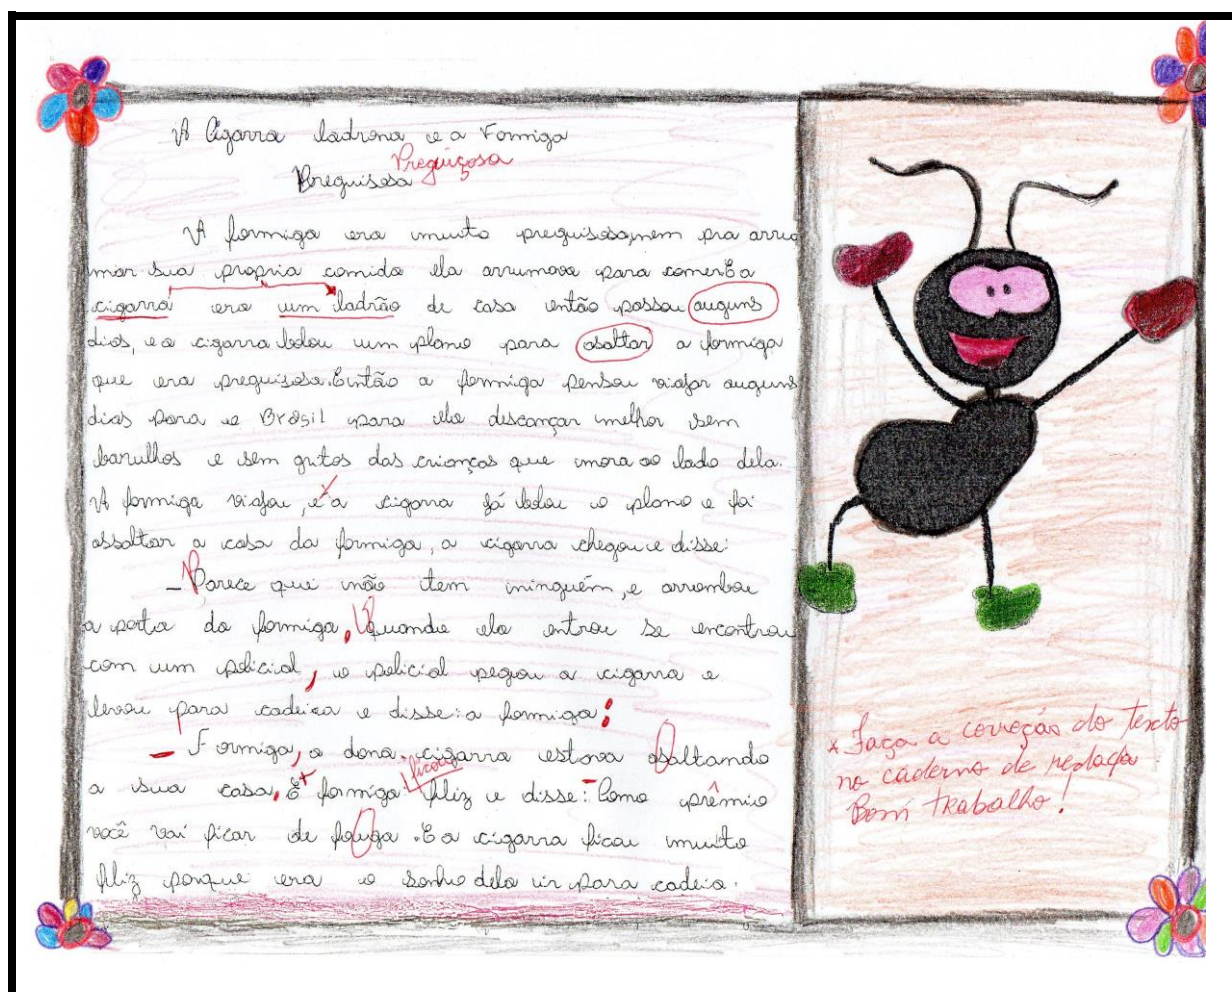 A Cigarra ladrona e a Formiga
Preguiçosa
Preguisosa
A formiga era muito preguisosa, nem pra arru
mar sua propria comida ela arrumava para comer. E a
cigarra era um ladrão de casa então passou auguns
dias, e a cigarra bolou um plano para asaltar a formiga
que era preguisosa. Então a formiga pensou viajar auguns
dias para o Brasil para ela descançar melhor sem
barulhos e sem gritos das crianças que mora ao lado dela.
A formiga viajou, e a cigarra já bolou o plano e foi
assaltar a casa da formiga, a cigarra chegou e disse:
– Parece que não tem ninguém, e arrombou
a porta da formiga. Quando ela entrou se encontrou
com um policial, o policial pegou a cigarra e
levou para cadeia e disse: a formiga:
– Formiga, a dona cigarra estava asaltando
a sua casa. E + formiga ficou filiz e disse: – Como prêmio
você vai ficar de fouga. E a cigarra ficou muito
filiz porque era o sonho dela ir para cadeia.
x Faça a correção do texto
no caderno de redação
Bom trabalho!